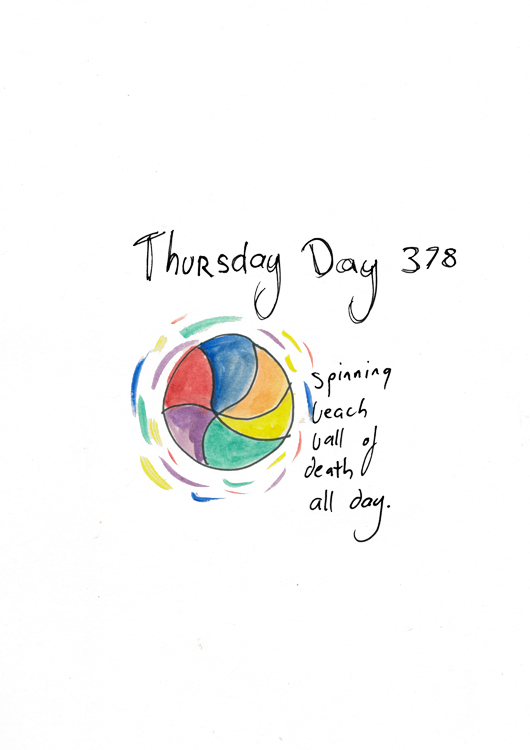 Thursday Day 378
spinning
beach
ball of
death
all day.